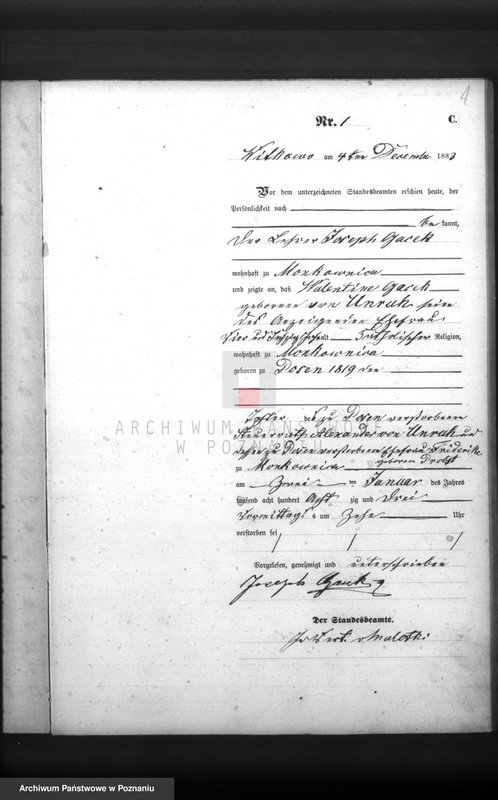 4
Nr. 1
C.
Witkowo am 4ten 1883
Vor dem unterzeichneten Standesbeamten erschien heute, der
Persönlichkeit nach
be kannt,
der Lehrer Joseph Gacek
wohnhaft zu Monkownica
und zeigte an, daß Valentine Gacek
geborene von Unruh, seine
des Anzeigenden Ehefrau
Vier und alt, Katholischer Religion,
wohnhaft zu Monkownica
geboren zu Posen 1819 den
Tochter des zu Posen verstorbenen
Steuerrath Alexander von Unruh und
dessen zu Posen verstorbenen Ehefrau Friderike
geborene
zu Monkownica
am Zwei ten Januar des Jahres
tausend acht hundert Acht zig und Drei
Vormittags um Zehn Uhr
verstorben sei
Vorgelesen, genehmigt und unterschrieben
Joseph Gacek
Der Standesbeamte.
In Vert.
ARCHIWUM PAŃSTWOWE
W POZNANIU
Archiwum Państwowe w Poznaniu